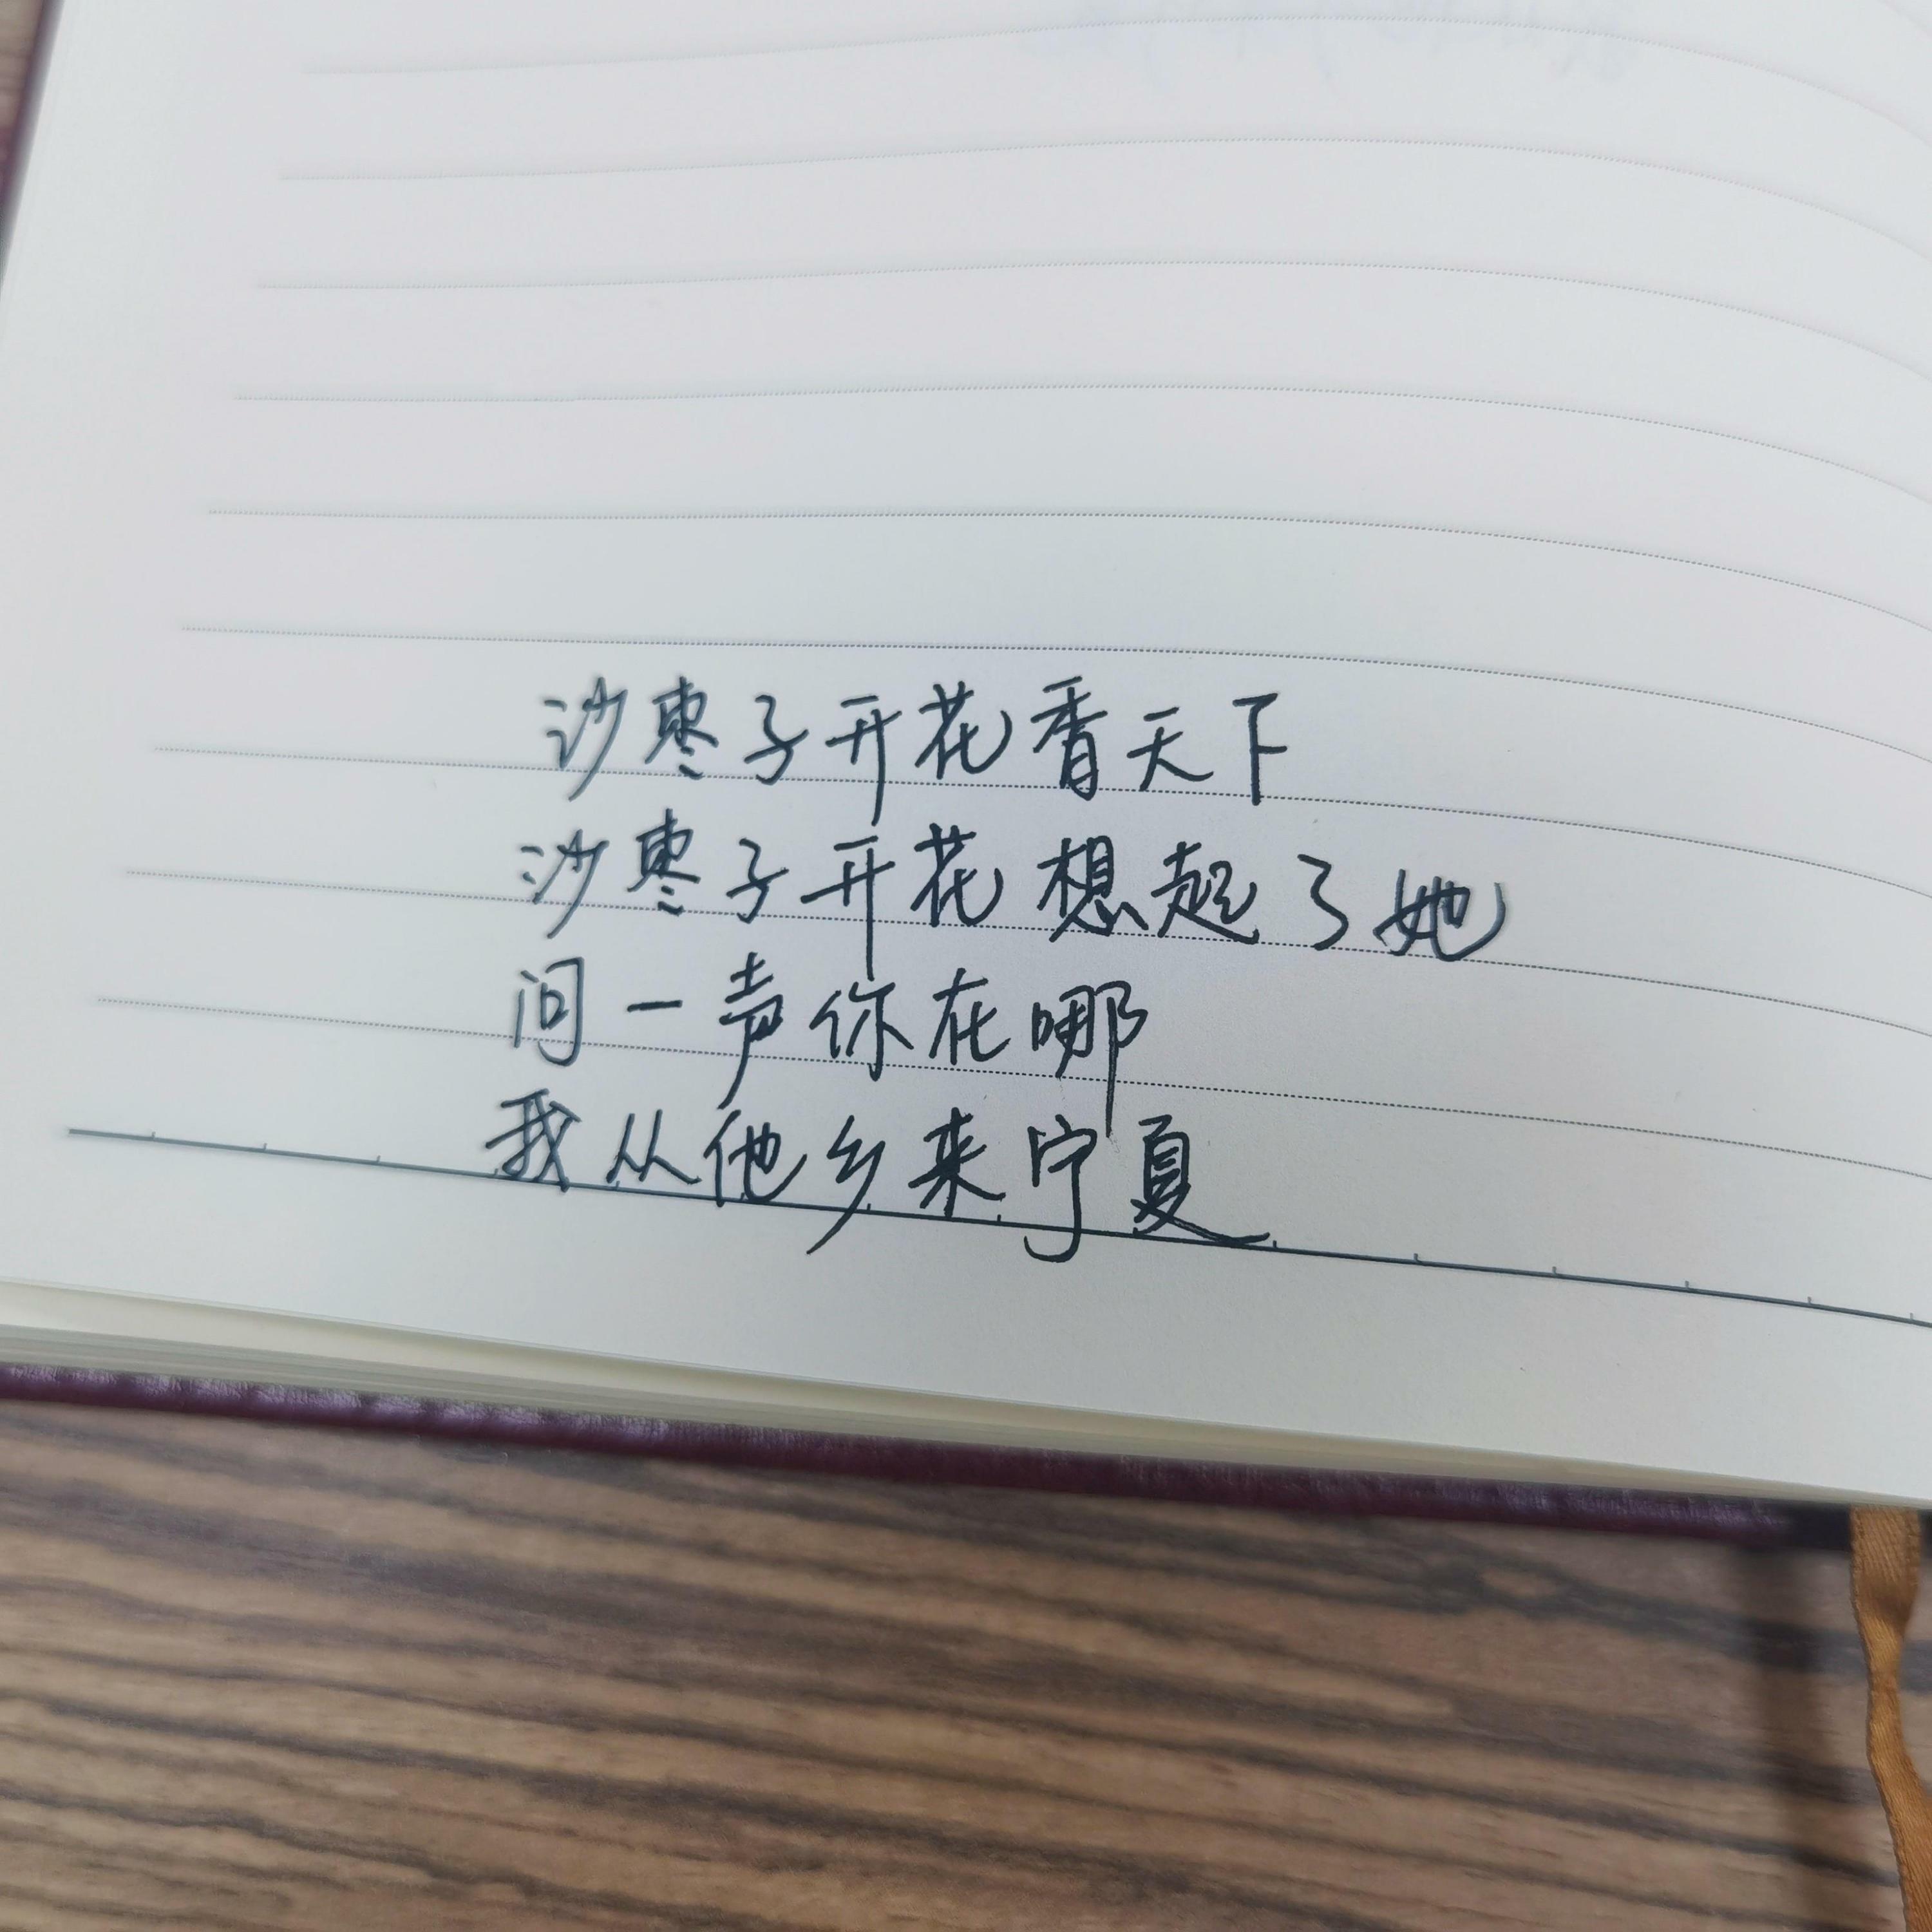 沙枣子开花香天下
沙枣子开花想起了她
问一声你在哪
我从他乡来宁夏